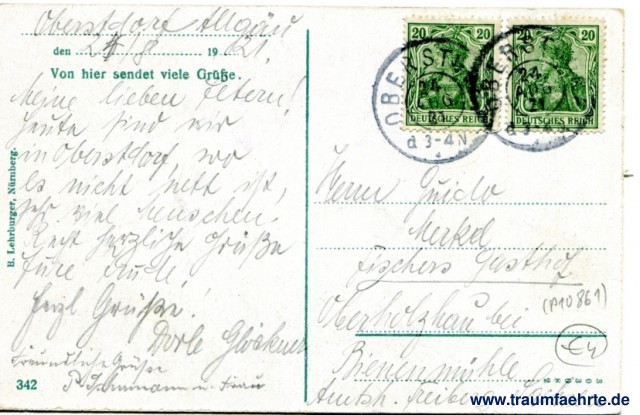 Oberstdorf Allgäu
den 24/8 1921.
Von hier sendet viele Grüße.
Meine lieben Eltern!
Heute sind wir
in Oberstdorf wo
es nicht nett ist,
sehr viel Menschen.
Recht herzliche Grüße
Eure
Herzl. Grüße!
Dorle Glöckner
Freundliche Grüße
u. Frau
342
B. Lehrburger, Nürnberg.
20 20 20 20
DEUTSCHES REICH DEUTSCHES REICH
OBERSTDORF
24 AUG 21
d 3-4N
Herrn Guido
Merkel
Fischers Gasthof
Oberholzhau bei
(A10861)
Bienenmühle
Amtsh. Freiberg i. Sa.
www.traumfaehrte.de